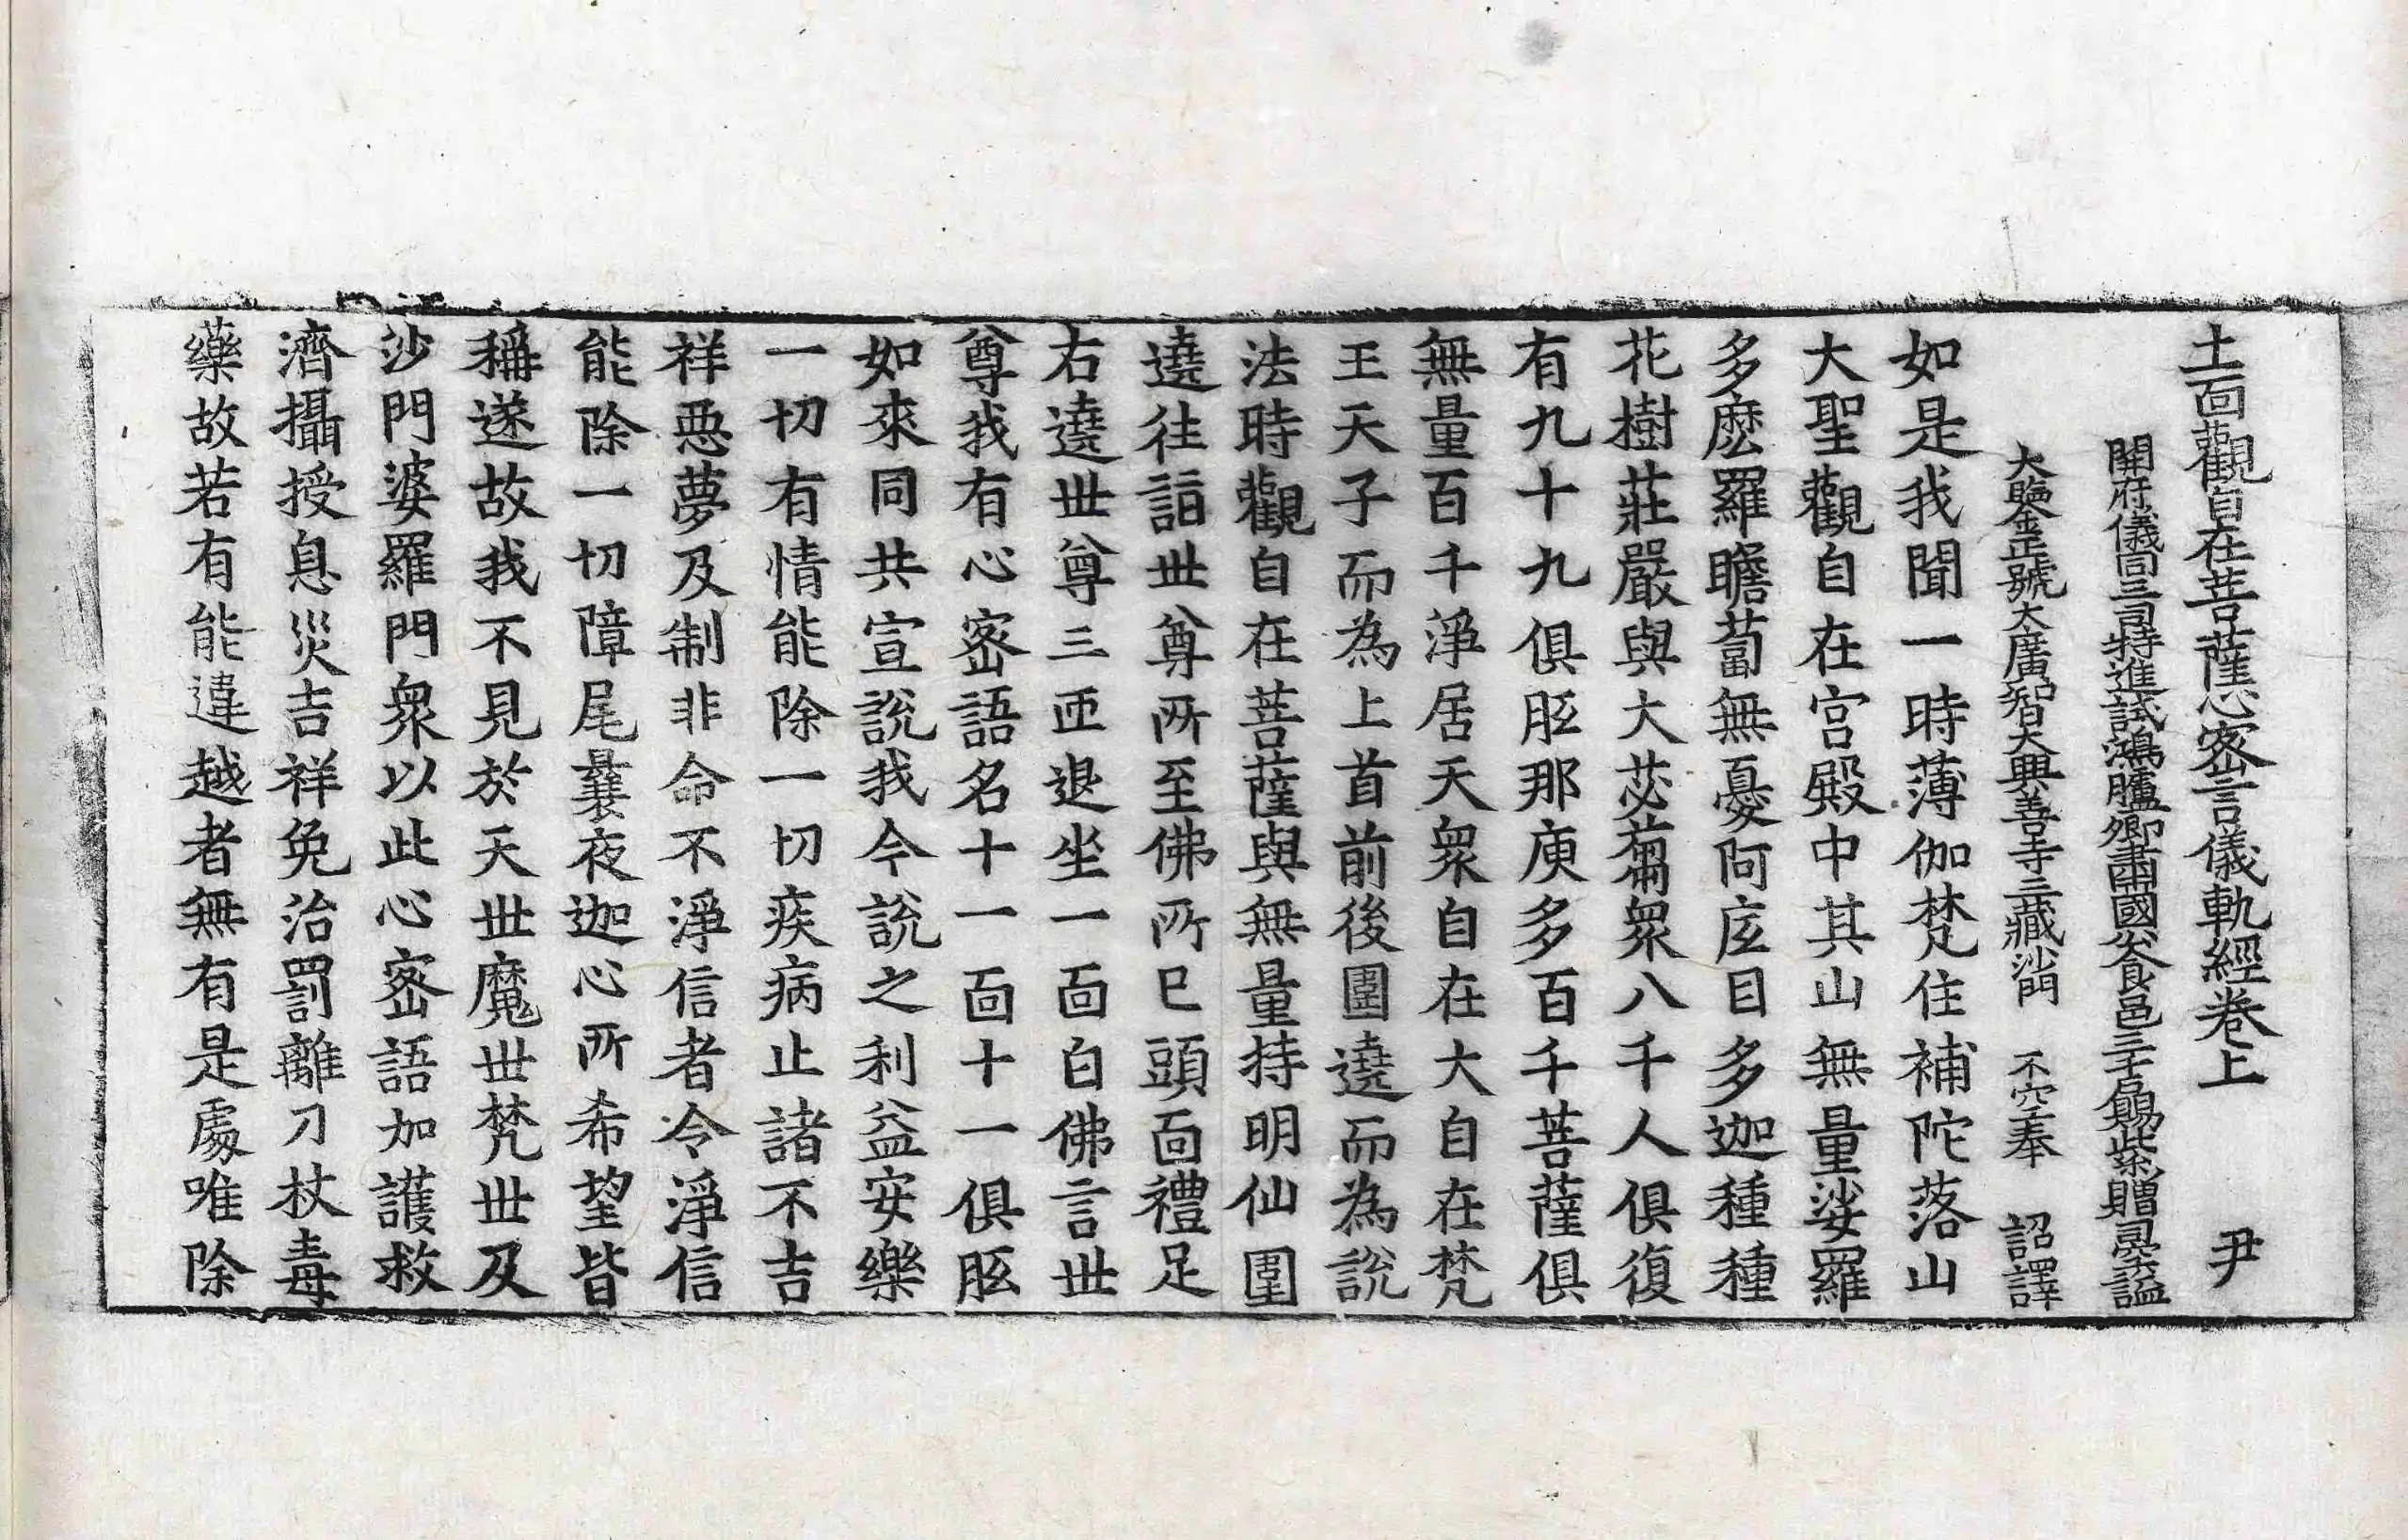 十一面觀自在菩薩心密言儀軌經卷上 尹
開府儀同三司特進試鴻臚卿肅國公食邑三千戶賜紫贈司空謚
大鑒正號大廣智大興善寺三藏沙門 不空奉 詔譯
如是我聞一時薄伽梵住補陀落山
大聖觀自在宮殿中其山無量娑羅
多麽羅瞻蔔無憂阿底目多迦種種
花樹莊嚴與大苾蒭衆八千人俱復
有九十九俱胝那庾多百千菩薩俱
無量百千淨居天衆自在大自在梵
王天子而為上首前後圍遶而為說
法時觀自在菩薩與無量持明仙圍
遶往詣世尊所至佛所已頭面禮足
右遶世尊三匝退坐一面白佛言世
尊我有心密語名十一面十一俱胝
如來同共宣說我今說之利益安樂
一切有情能除一切疾病止諸不吉
祥惡夢及制非命不淨信者令淨信
能除一切障尾曩夜迦心所希望皆
稱遂故我不見於天世魔世梵世及
沙門婆羅門衆以此心密語加護救
濟攝授息災吉祥免治罰離刀杖毒
藥故若有能違越者無有是處唯除